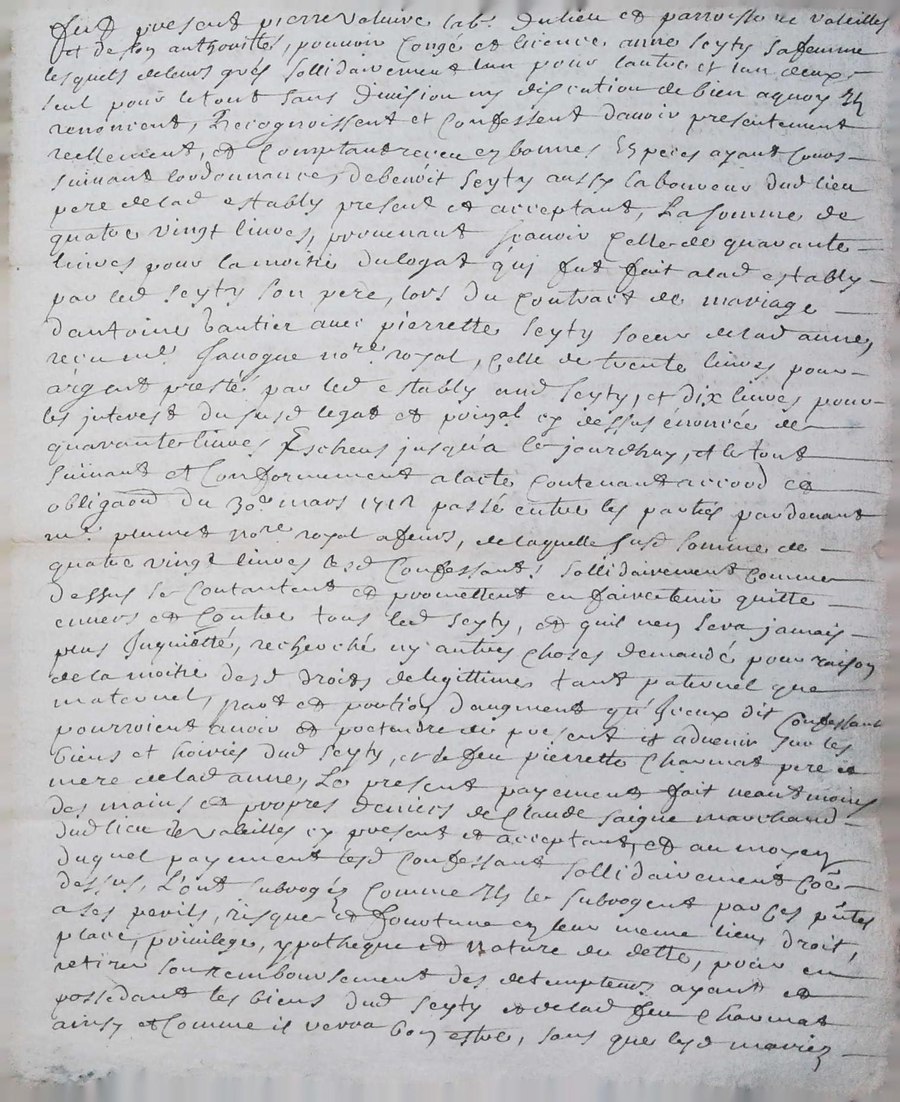 fut present pierre valuire lab.r du lieu et parroisse de valeilles
et de son authorittes, pouvoir congé et licence anne Seyty sa femme
lesquels de leurs grés sollidairement l'un pour l'autre et l'un deux
seul pour le tout sans division ny discution de bien a quoy ils
renoncent, Recognoissent et Confessent davoir presentement
reellement, et Comptant receu en bonnes Especes ayant cours
suivant lordonnance, de benoit Seyty aussy laboureur dud lieu
pere de lad establÿ present et acceptant, La somme de
quatre vingt livres, provenant scavoir Celle de quarante
livres pour la moitié du legat qui fut fait a lad establÿ
par led Seyty son pere, lors du Contract de mariage
dantoine bautier avec pierrette Seyty soeur de lad anne,
recu me no.re royal, Celle de trente livres pour
argent presté par led establÿ aud Seyty, et dix livres pour
les interest du susd legat et prinpal cy dessus énoncée de
quarante livres Escheus jusqu'a ce jourdhuy, et le tout
suivant et Conformement a lacte Contenant accord et
obliga͠on du 30.e mars 1712 passé entre les parties pardevant
me plumet no.re royal a feurs, de laquelle susd somme de
quatre vingt livres lesd Confessant sollidairement Comme
dessus se Contantent et promettent en faire tenir quitte
envers et Contre tous led Seyty, et quil n'en sera jamais
plus Inquietté, recherché ny autres choses demandé pour raison
de la moitié desd droits de legittime tant paternel que
maternel, part et portion d'augment qu'Iceux dit Confessant
pourroient avoir et pretendre de present et advenir sur les
biens et hoiries dud Seyty, et de feu pierrette Charmat pere et
mere de lad anne, Le present payement fait neantmoins
des mains et propres deniers de Claude Saigne marchand
dud lieu de Valeilles cy present et acceptant, et au moyen
duquel payement lesd Confessant sollidairement Cõe
dessus, L'ont subrogéz Comme ils le subrogent par Ces pñtes
a ses perils, risque et fourtune en leur meme lieu, droit,
place, privileges, ypotheque et Nature de dette, pour en
retirer son remboursement des detempteurs ayant et
possedant les biens dud Seyty et de lad feu Charmat
ainsy et Comme il verra bon estre, sans que lesd mariez